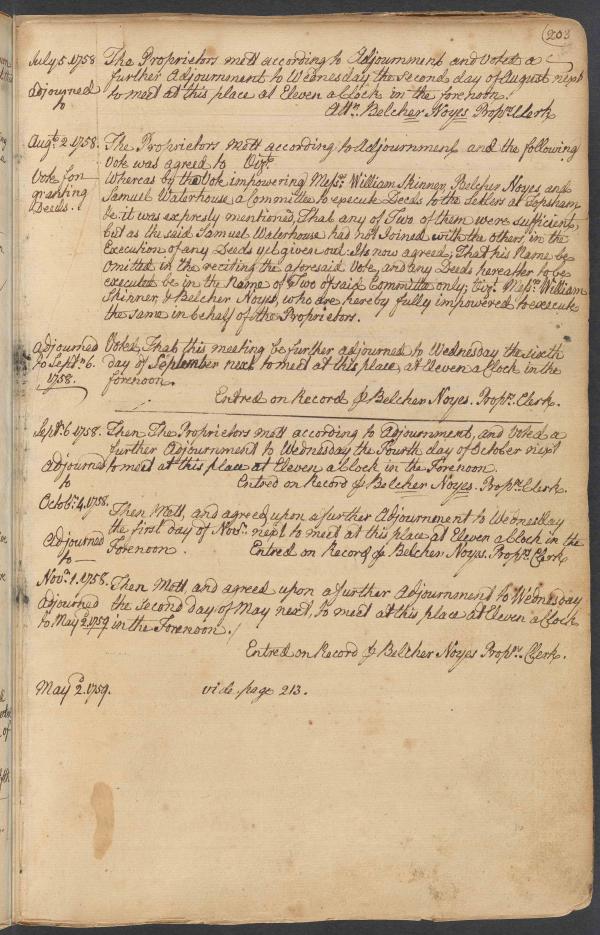 203
July 5. 1758 The Proprietors mett according to Adjournment and Voted a
further Adjournment to Wednesday the Second day of August next
adjourned
to
to meet at this place at Eleven a Clock in the forenoon.
Att.r Belcher Noyes Prop.rs Clerk
Aug.t 2 1758. The Proprietors Mett according to Adjournment, and the following
Vote was agreed to Viz.t
Vote for
granting
Deeds.
Whereas by the Vote impowering Mess.rs William Skinner, Belcher Noyes and
Samuel Waterhouse a Committee to execute Deeds to the Setlers at Topsham
&c. it was expresly mentioned, That any of Two of them were sufficient,
but as the said Samuel Waterhouse had not Joined with the others, in the
Execution of any Deeds yet given out. Its now agreed, That his Name be
Omitted in the reciting the aforesaid Vote, and any Deeds hereafter to be
executed be in the Name of Two of said Committe only, Viz.t Mess.rs William
Skinner, & Belcher Noyes, who are hereby fully impowered to execute
the same in behalf of the Proprietors.
adjourned
to Sept.r 6.
1758.
Voted, That this meeting be further adjourned to Wednesday the sixth
day of September next to meet at this place, at Eleven a Clock in the
forenoon.
Entred on Record p Belcher Noyes. Prop.rs Clerk.
Sept.r 6 1758. Then The Proprietors mett according to Adjournment, and Voted a
further Adjournment to Wednesday the Fourth day of October next
adjourned
to
to meet at this place at Eleven a Clock in the Forenoon.
Entred on Record p Belcher Noyes. Prop.rs Clerk.
Octob.r 4. 1758.
Then Mett, and agreed upon a further Adjournment to Wednesday
the first day of Nov.r next to meet at this place at Eleven a Clock in the
Adjourned
to
Forenoon. Entred on Record p Belcher Noyes. Prop.rs Clerk
Nov.r 1. 1758. Then Mett, and agreed upon a further Adjournment to Wednesday
adjourned
to May 2 1759
the Second day of May next, to meet at this place at Eleven a Clock
in the Forenoon.
Entred on Record p Belcher Noyes Prop.rs Clerk.
May 2. 1759. vide page 213.